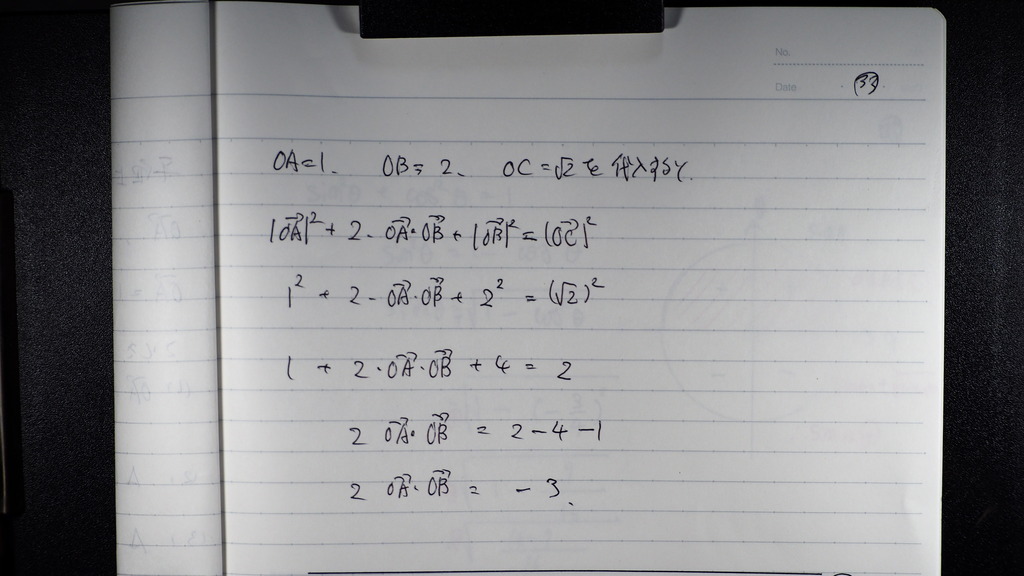 No.
Date ・ ㉝ ・
OA=1. OB=2、 OC=√2を代入すると.
|OA→|² + 2・OA→・OB→ + |OB→|² = |OC→|²
1² + 2・OA→・OB→ + 2² = (√2)²
1 + 2・OA→・OB→ + 4 = 2
2 OA→・OB→ = 2-4-1
2 OA→・OB→ = -3.